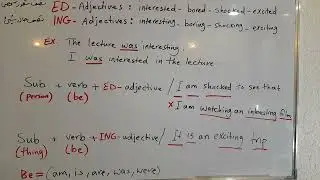 ED - Adjectives : interested - bored - shocked - excited
ING - Adjectives : interesting, boring - shocking - exciting
Ex. The lecture was interesting.
I was interested in the lecture
Sub + verb + ED-adjective / I am shocked to see that
(person) (be) x I am watching an interesting film
Sub + verb + ING-adjective / It is an exciting trip
(thing) (be)
Be = (am, is, are, was, were)